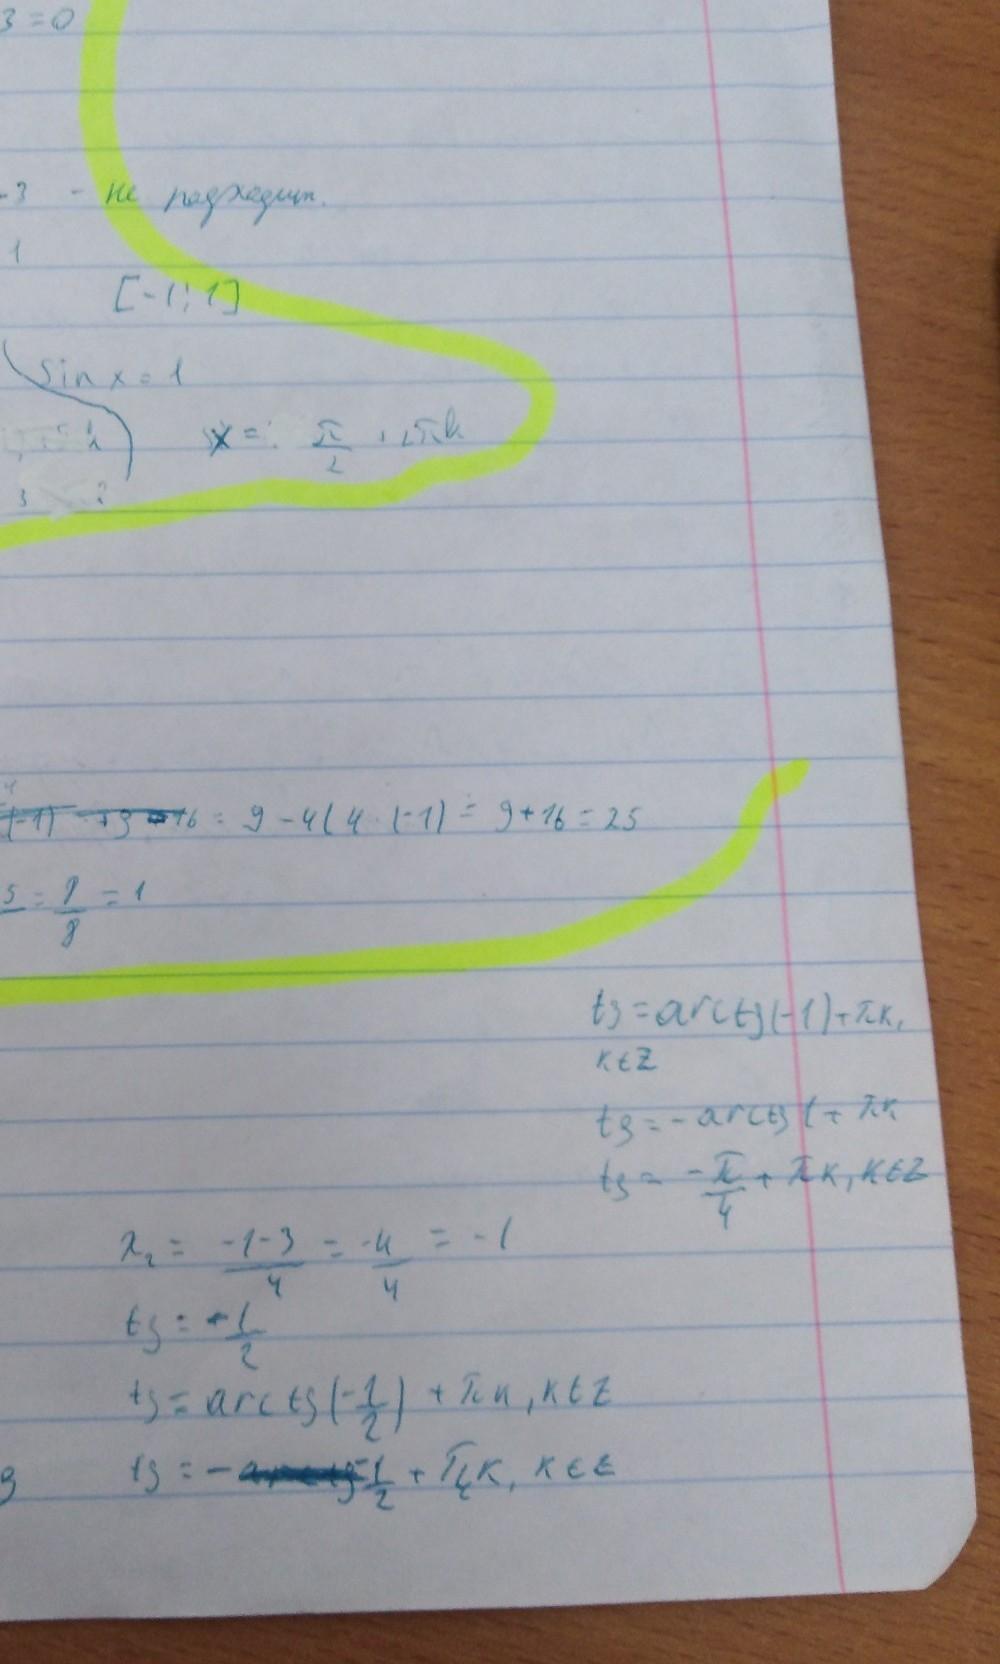 3 = 0
-3 - не подходит.
1
[-1; 1]
sin x = 1
x = π/2 + 2πk
(-1) +9 - 16 = 9 - 4(4 · (-1) = 9 + 16 = 25
5 = 8/8 = 1
tg = arctg(-1) + πk,
k ∈ Z
tg = - arctg 1 + πk
tg = -π/4 + πk, k ∈ Z
x₂ = -1-3/4 = -4/4 = -1
tg = -1/2
tg = arctg(-1/2) + πk, k ∈ Z
tg = - 1/2 + πk, k ∈ Z